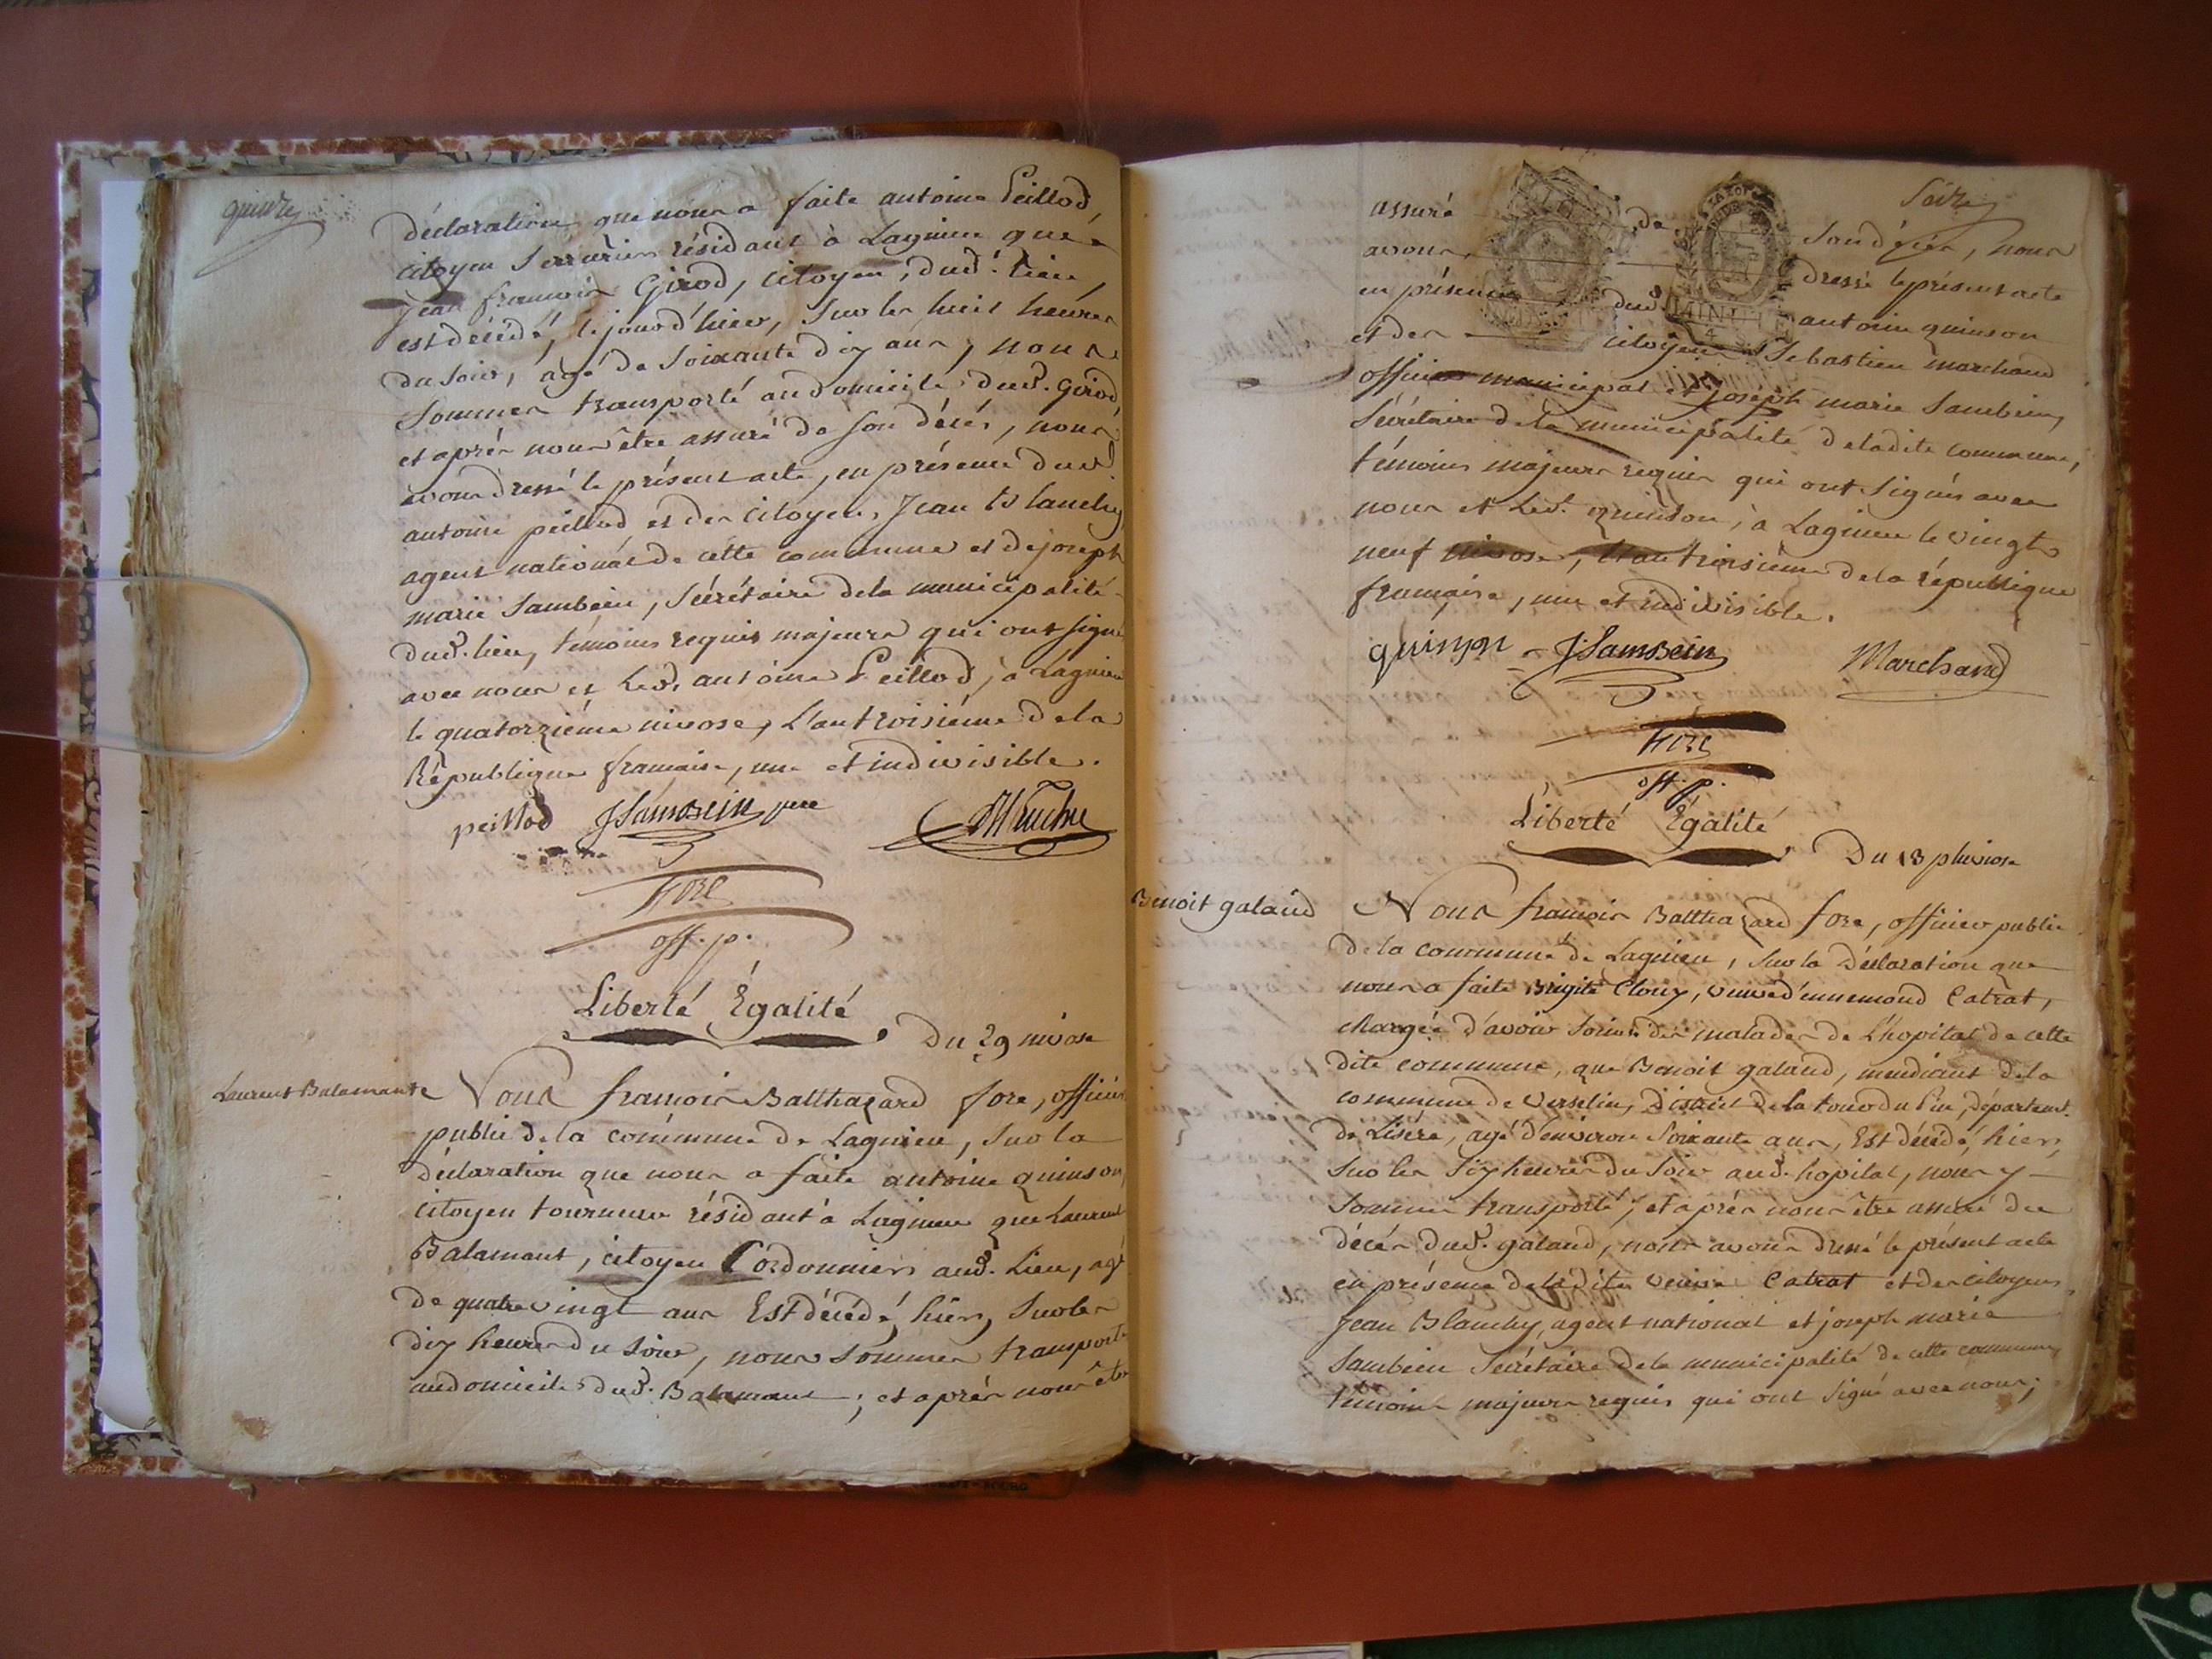 quinze
déclaration que nous a faite antoine Peillod
citoyen Serrurier résidant à Lagnieu que
Jean françois Girod, citoyen, dud. lieu,
est décédé, le jour d'hier, Sur les huit heures
du soir, agé de Soixante dix ans, nous
Sommes transporté au domicile dud. Girod
et après nous être assuré de son décés, nous
avons dressé le présent acte, en présence dud
antoine peillod et des citoyens Jean Blanchy
agent national de cette commune et de joseph
marie Sambein, Sécrétaire de la municipalité
dud. lieu, témoins requis majeurs qui ont signé
avec nous et led. antoine Peillod, à Lagnieu
le quatorzième nivose, L'an troisième de la
République francaise, une et indivisible.
peillod JSambein
fore
off. p.
Liberté Égalité
Du 29 nivose
Laurent Balamant
Nous françois Balthazard fore, officier
public de la commune de Lagnieu, Sur la
déclaration que nous a faite antoine quinson
citoyen tourneur résidant à Lagnieu que Laurent
Balamant, citoyen Cordonnier aud. Lieu, agé
de quatre vingt ans Est décédé, hier, Sur les
dix heures du Soir, nous Sommes transporté
au domicile dud. Balamant; et après nous être
Seize
assuré de Son décés, nous
avons dressé le présent acte
en présence dud antoine quinson
et des citoyens Sebastien marchand
officier municipal et joseph marie Sambein,
Sécrétaire de la municipalité de ladite commune,
témoins majeurs requis qui ont signés avec
nous et led. quinson, à Lagnieu le vingt
neuf nivose, l'an troisième de la république
française, une et indivisible.
quinson JSambein Marchand
fore
off. p.
Liberté Égalité
Du 13 pluviose
Benoit galand
Nous françois Balthazard fore, officier public
de la commune de Lagnieu, Sur la Déclaration que
nous a faite Brigite Clouy, veuve d'ennemond Catrat,
chargée d'avoir Soin des malades de L'hopital de cette
dite commune, que Benoit galand, mendiant de la
commune de Verselin, District de la tour du Pin, départemt.
de Lisère, agé d'environ Soixante ans, Est décédé, hier,
Sur les Six heures du Soir aud. hopital, nous y
Sommes transporté; et après nous être assuré du
décés dud. galand, nous avons dressé le présent acte
en présence de ladite veuve Catrat et des citoyens
Jean Blanchy, agent national et joseph marie
Sambein Sécrétaire de la municipalité de cette commune,
témoins majeurs requis qui ont signé avec nous;